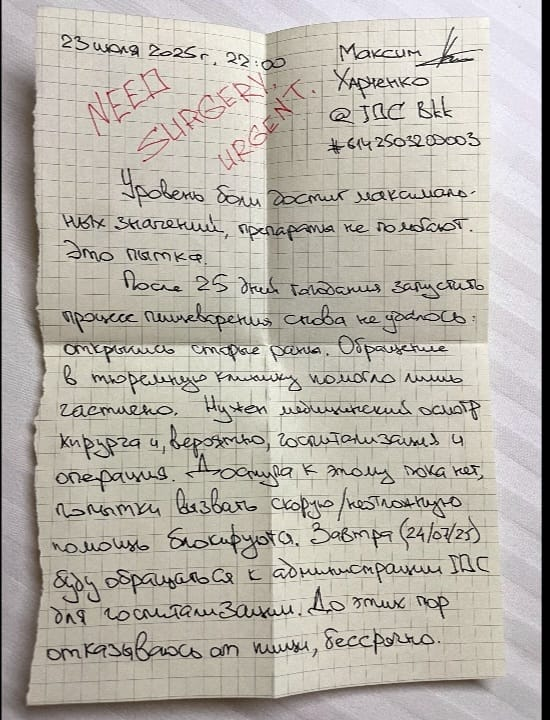 23 июля 2025г, 22:00
Максим
Харченко
@ IDC Bkk
#6142503200003
NEED
SURGERY.
URGENT.
Уровень боли достиг максималь-
ных значений, препараты не помогают.
Это пытка.
После 25 дней голодания запустить
процесс пищеварения снова не удалось:
открылись старые раны. Обращение
в тюремную клинику помогло лишь
частично. Нужен медицинский осмотр
хирурга и, вероятно, госпитализация и
операция. Доступа к этому пока нет,
попытки вызвать скорую/неотложную
помощь блокируются. Завтра (24/07/25)
буду обращаться к администрации IDC
для госпитализации. До этих пор
отказываюсь от пищи, бессрочно.